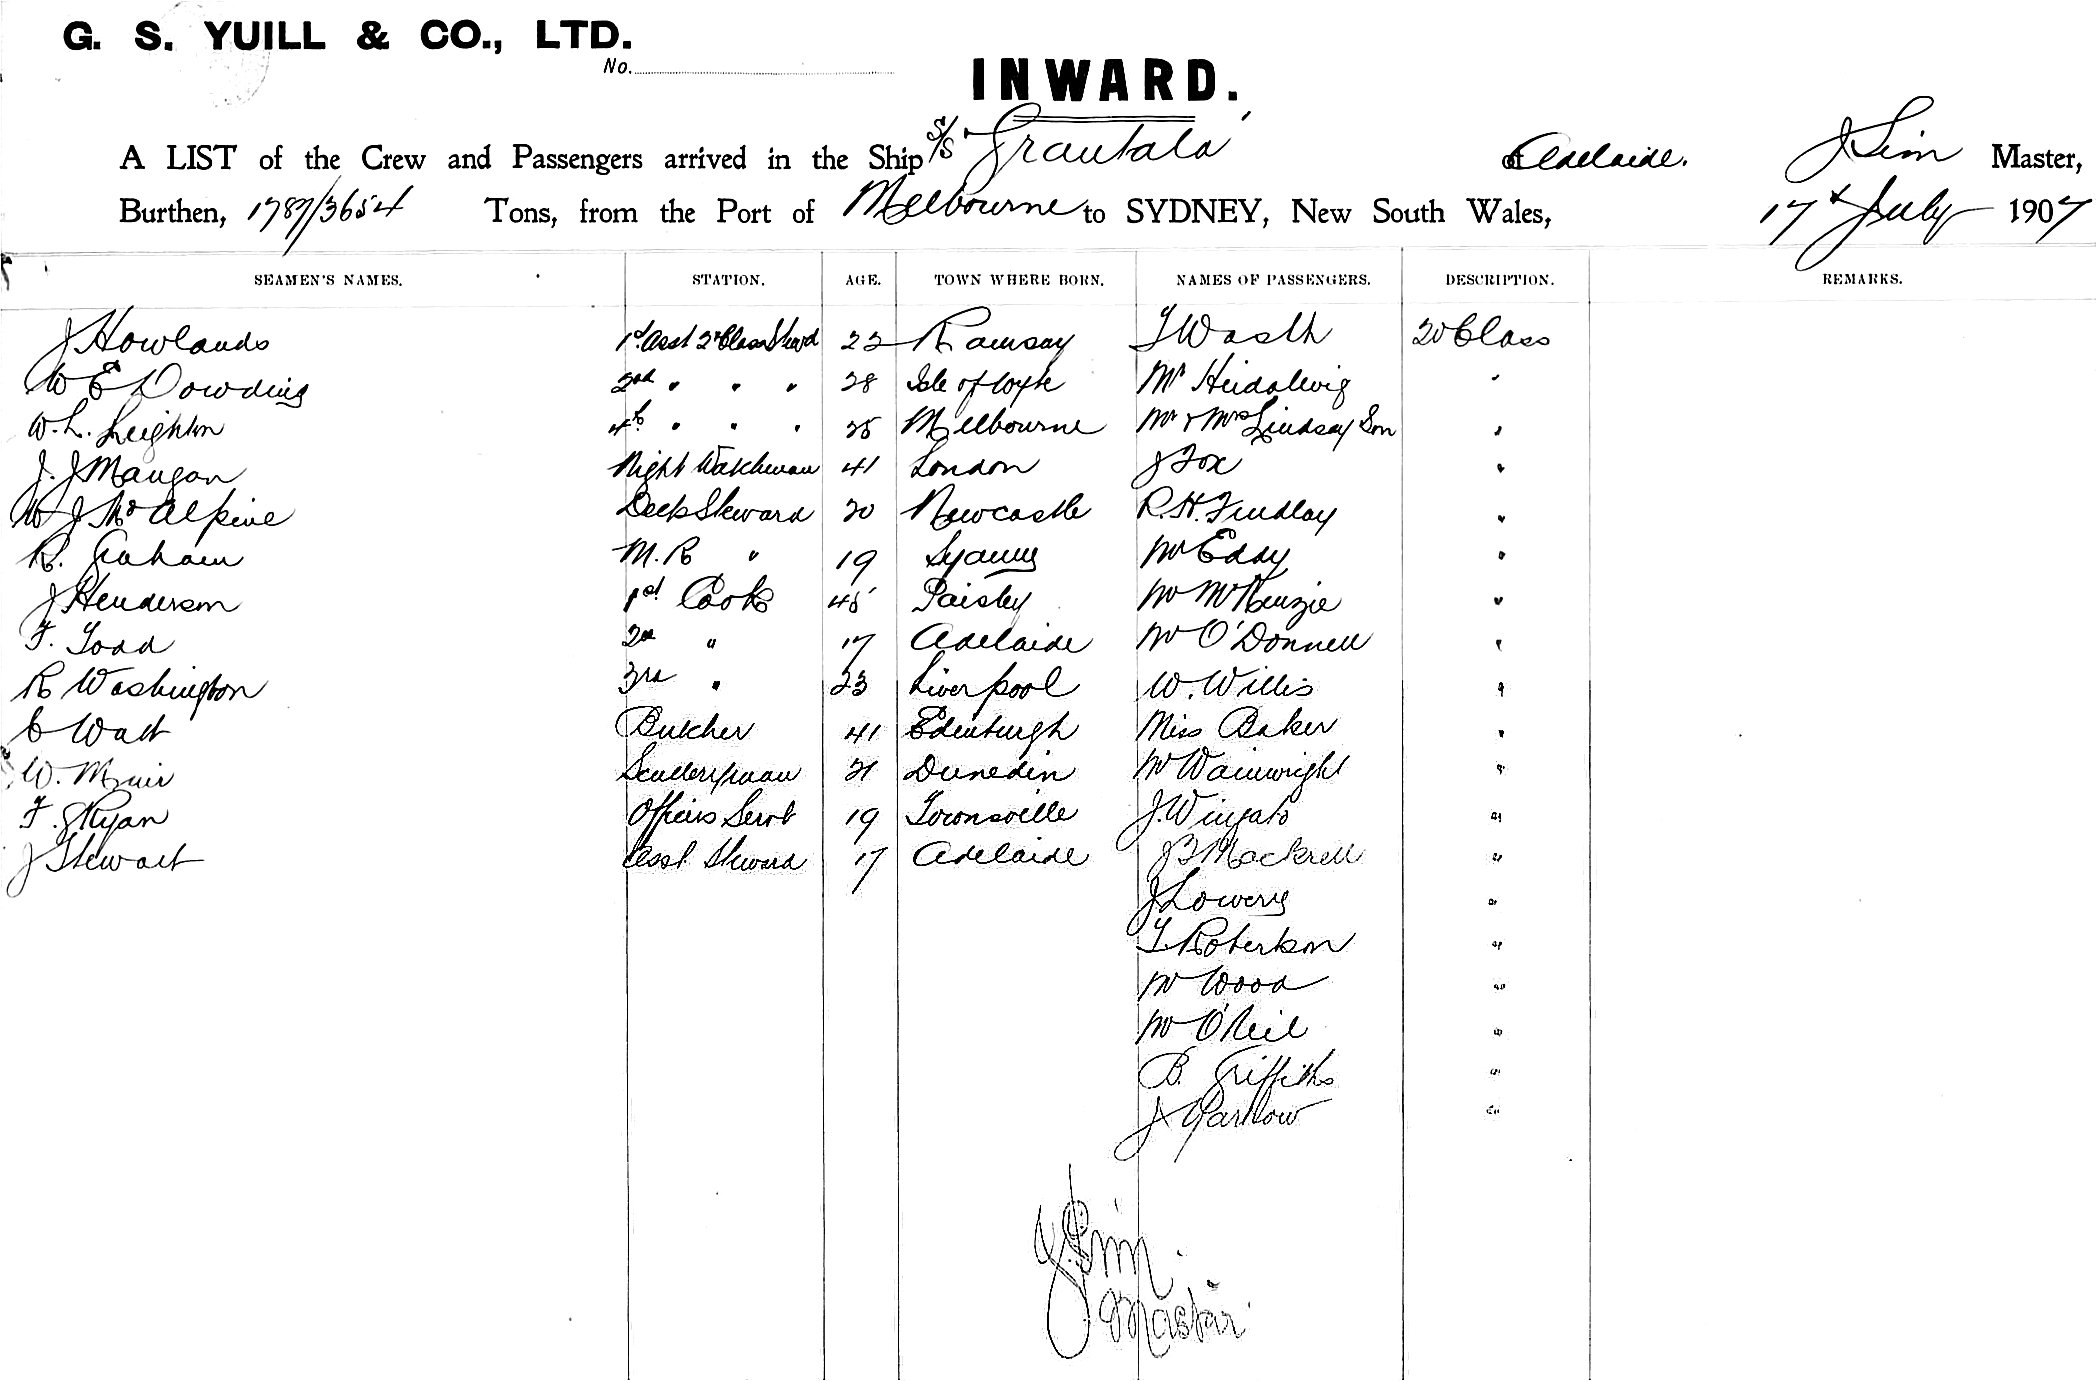 G. S. YUILL & CO., LTD.
No.
INWARD.
A LIST of the Crew and Passengers arrived in the Ship S/S "Grantala" of Adelaide. J Sim Master,
Burthen, 1787/3654 Tons, from the Port of Melbourne to SYDNEY, New South Wales, 17th July 1907
SEAMEN'S NAMES. STATION. AGE. TOWN WHERE BORN. NAMES OF PASSENGERS. DESCRIPTION. REMARKS.
J Howlands 1st Asst 2d Class Stewd 22 Ramsay T 2d Class
W E Dowding 2nd " " " 28 Isle of Mr
W. L. Leighton 4th " " " 25 Melbourne Mr & Mrs Lindsay Son "
J. J Mangan Night Watchman 41 London J Fox "
W J McAlpine Deck Steward 20 Newcastle R. H. Findlay "
R. Graham M. R " 19 Sydney Mr Eddy "
J Henderson 1st Cook 45 Paisley Mr McKenzie "
F. Todd 2nd " 17 Adelaide Mr O'Donnell "
R Washington 3rd " 23 Liverpool W. Willis "
C Watt Butcher 41 Edinburgh Miss Baker "
W. Muir Sculleryman 21 Dunedin Mr Wainwright "
F. J Ryan Officers Servt 19 Townsville J. Wingate "
J Stewart Asst Steward 17 Adelaide J B Mackrell "
J Lowery "
T. Robertson "
Mr Wood "
Mr O'Neil "
B. Griffiths "
J "
J. Sim
Master